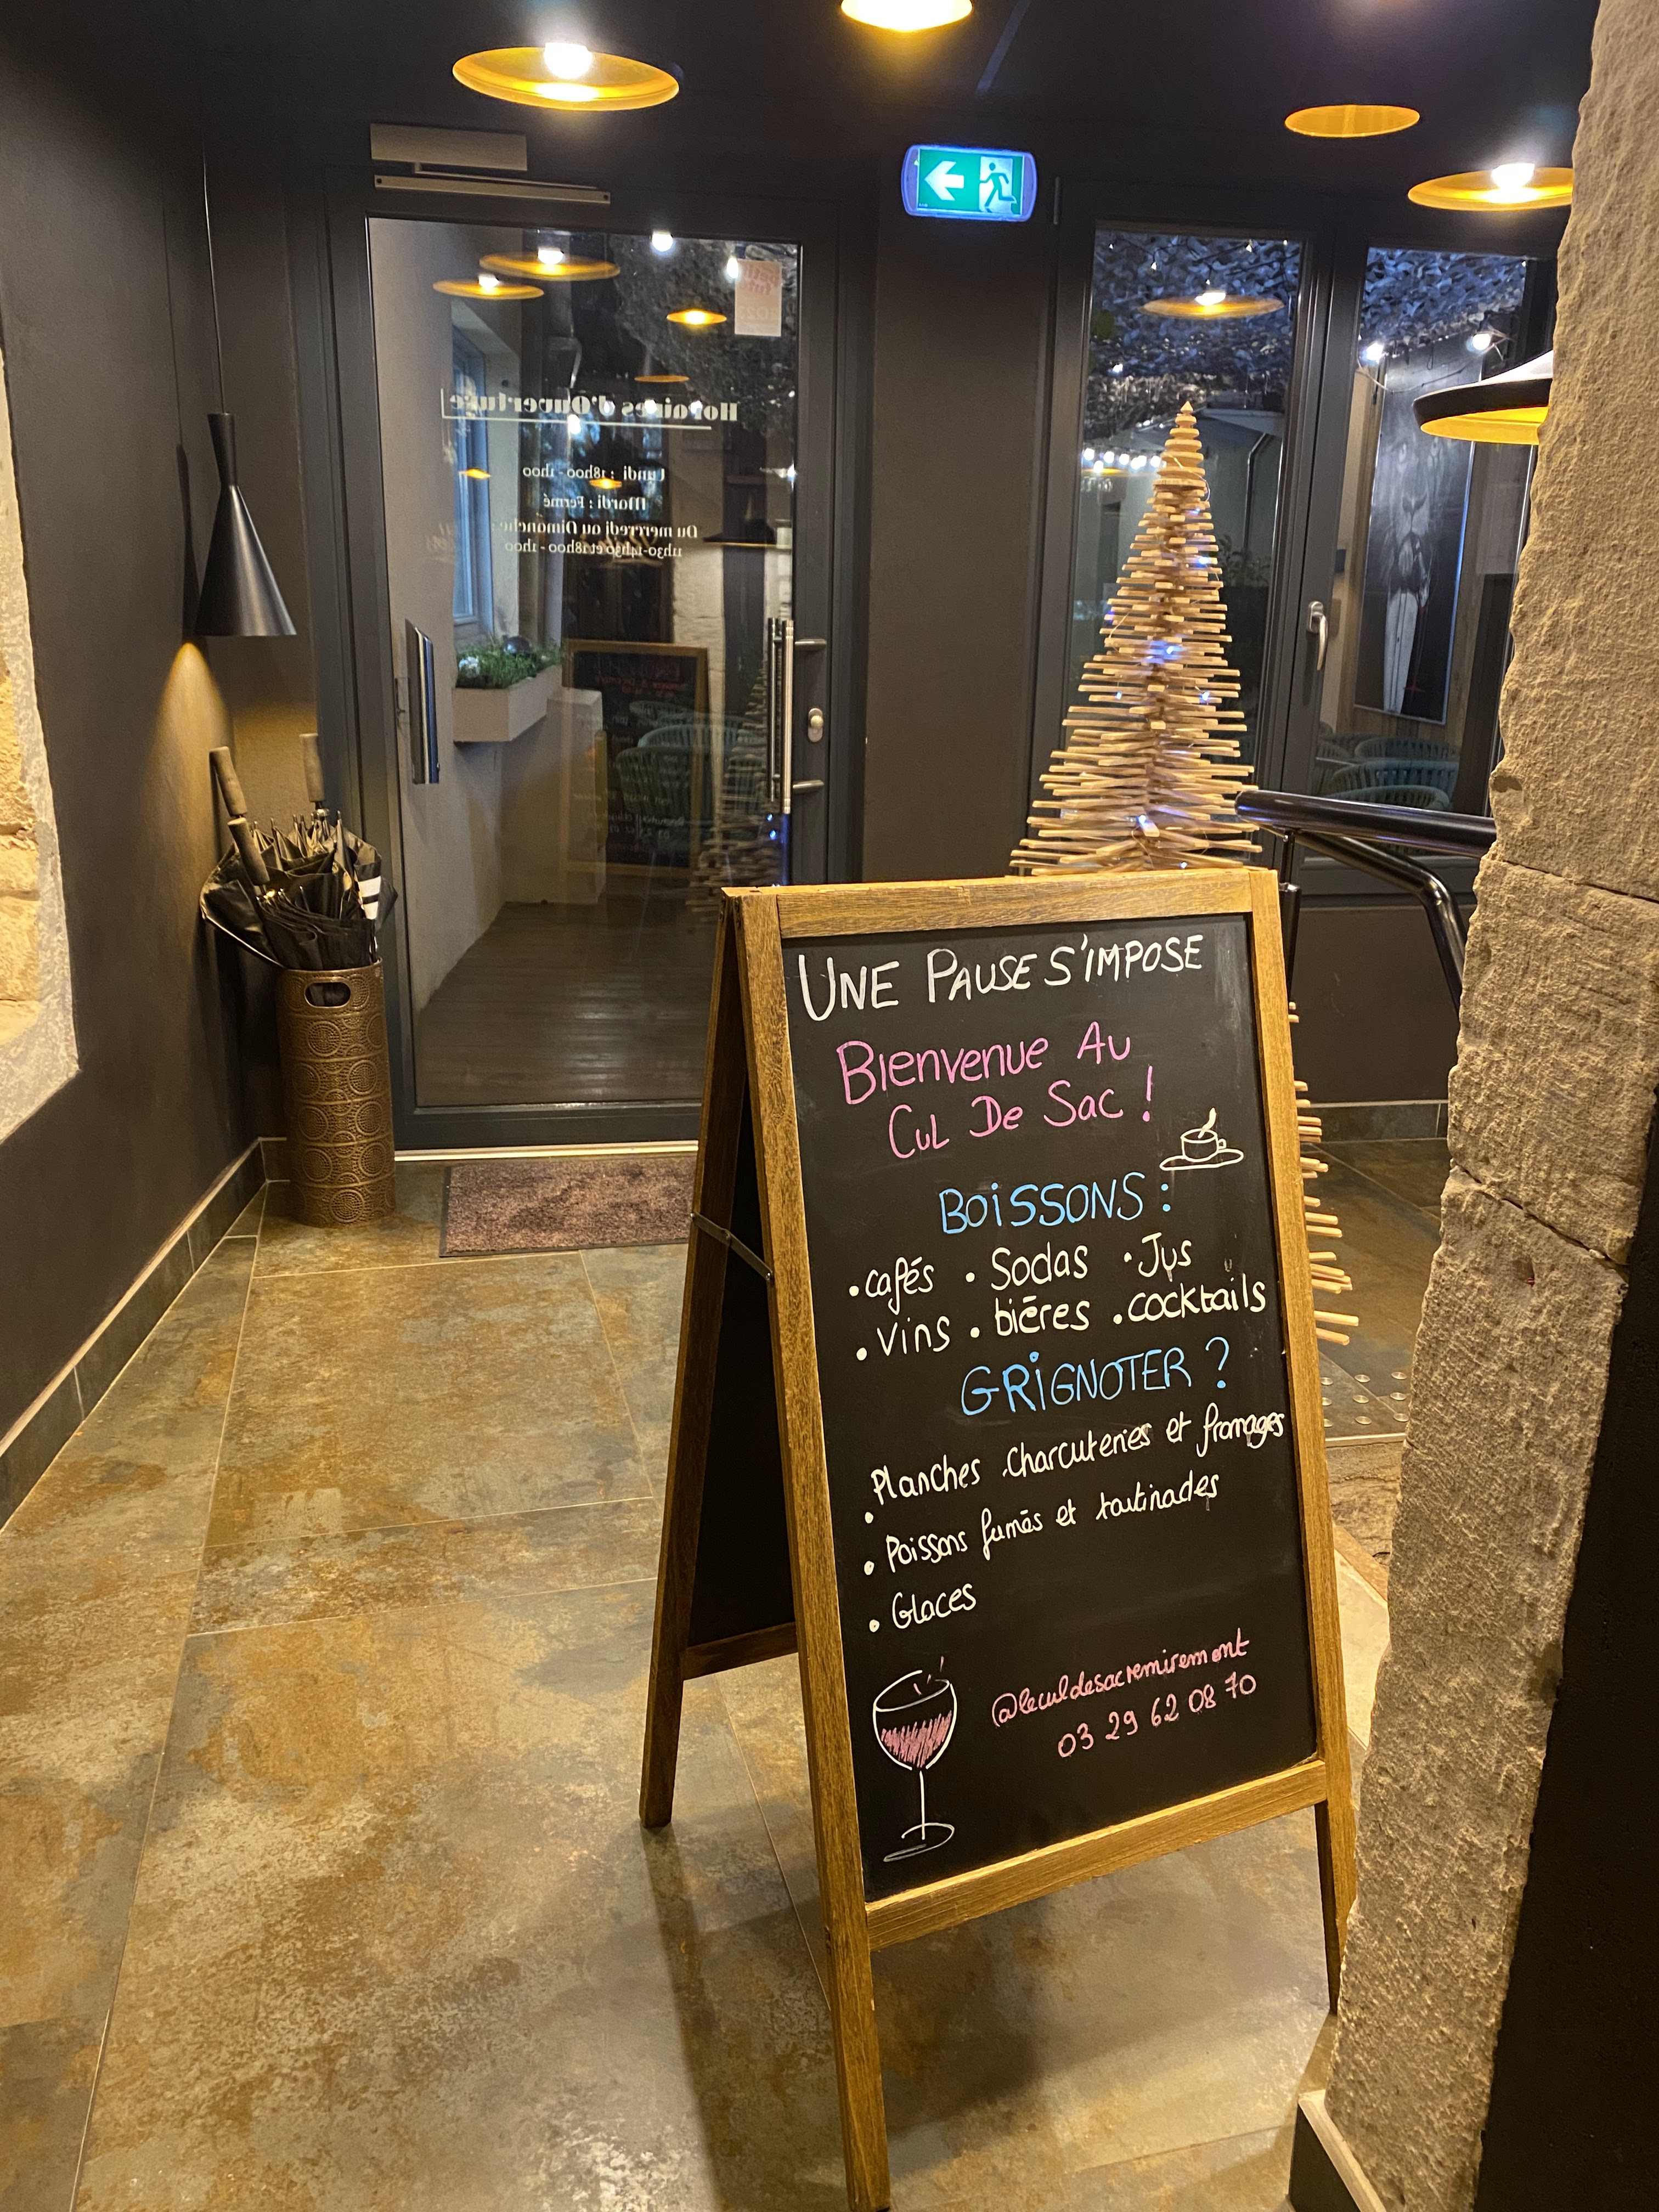 Horaires d'Ouverture
Lundi : 18h00 - 1h00
Mardi : Fermé
Du mercredi au Dimanche :
11h30-14h30 et 18h00 - 1h00
UNE PAUSE S'IMPOSE
BIENVENUE AU
CUL DE SAC !
BOISSONS :
• cafés • Sodas • Jus
• vins • bières • cocktails
GRIGNOTER ?
• Planches charcuteries et fromages
• Poissons fumés et tartinades
• Glaces
@leculdesacremiremont
03 29 62 08 70